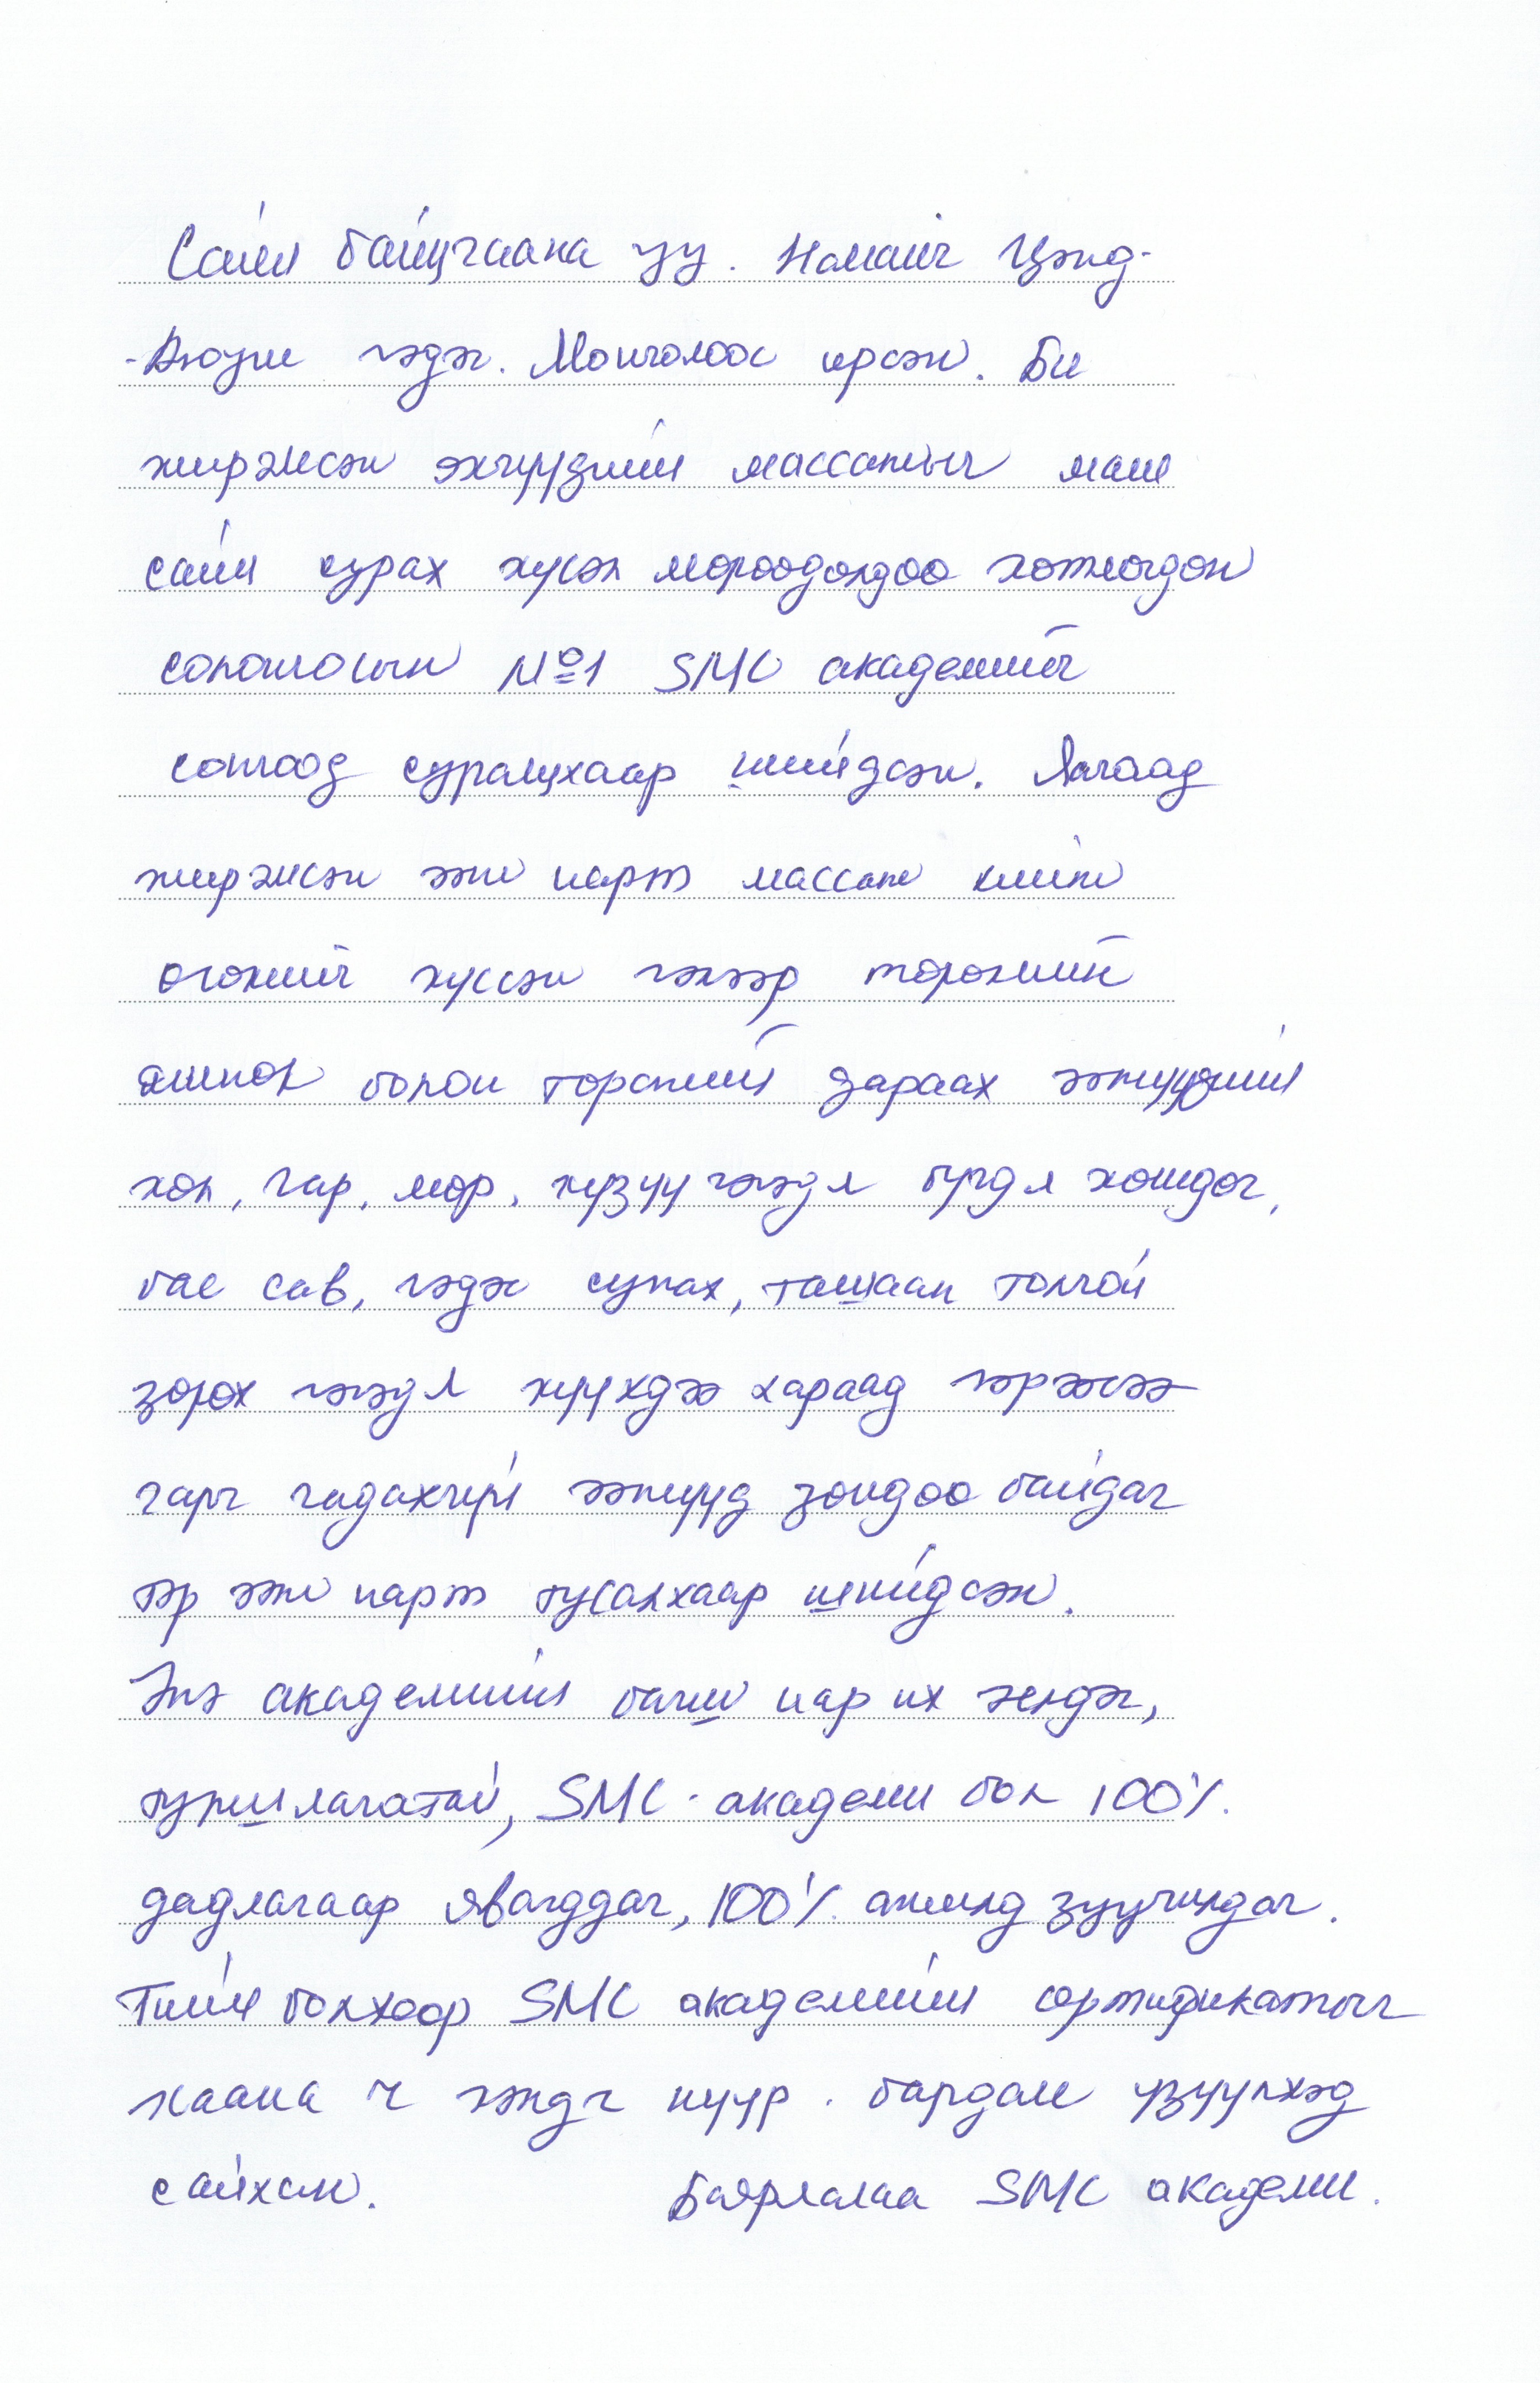 Сайн байцгаана уу. Намайг Цэнд-
-Аюуш гэдэг. Монголоос ирсэн. Би
жирэмсэн эхчүүдийн массажыг маш
сайн сурах хүсэл мөрөөдөлдөө хөтлөгдөн
солонгосын №1 SMC академийг
сонгоод суралцахаар шийдсэн. Яагаад
жирэмсэн ээж нарт массаж хийж
өгөхийг хүссэн гэхээр төрөхийн
өмнөх болон төрсний дараах ээжүүдийн
хөл, гар, мөр, хүзүү гэгээдл бүгдл хөшдөг,
бас сав, гэдэс сунах, ташаан толгой
зөрөх гэгээдл хүүхдээ хараад гэрээсээ
гарч чадахгүй ээжүүд зөндөө байдаг
тэр ээж нарт туслахаар шийдсэн.
Энэ академийн багш нар их мэндэг,
туршлагатай, SMC - академи бол 100%
дадлагаар явагддаг, 100% ажилд зуучилдаг.
Тийм болхоор SMC академийн сертификатыг
хаана ч гэждг нүүр бардам үзүүлхэд
сайхан. Баярлалаа SMC академи.